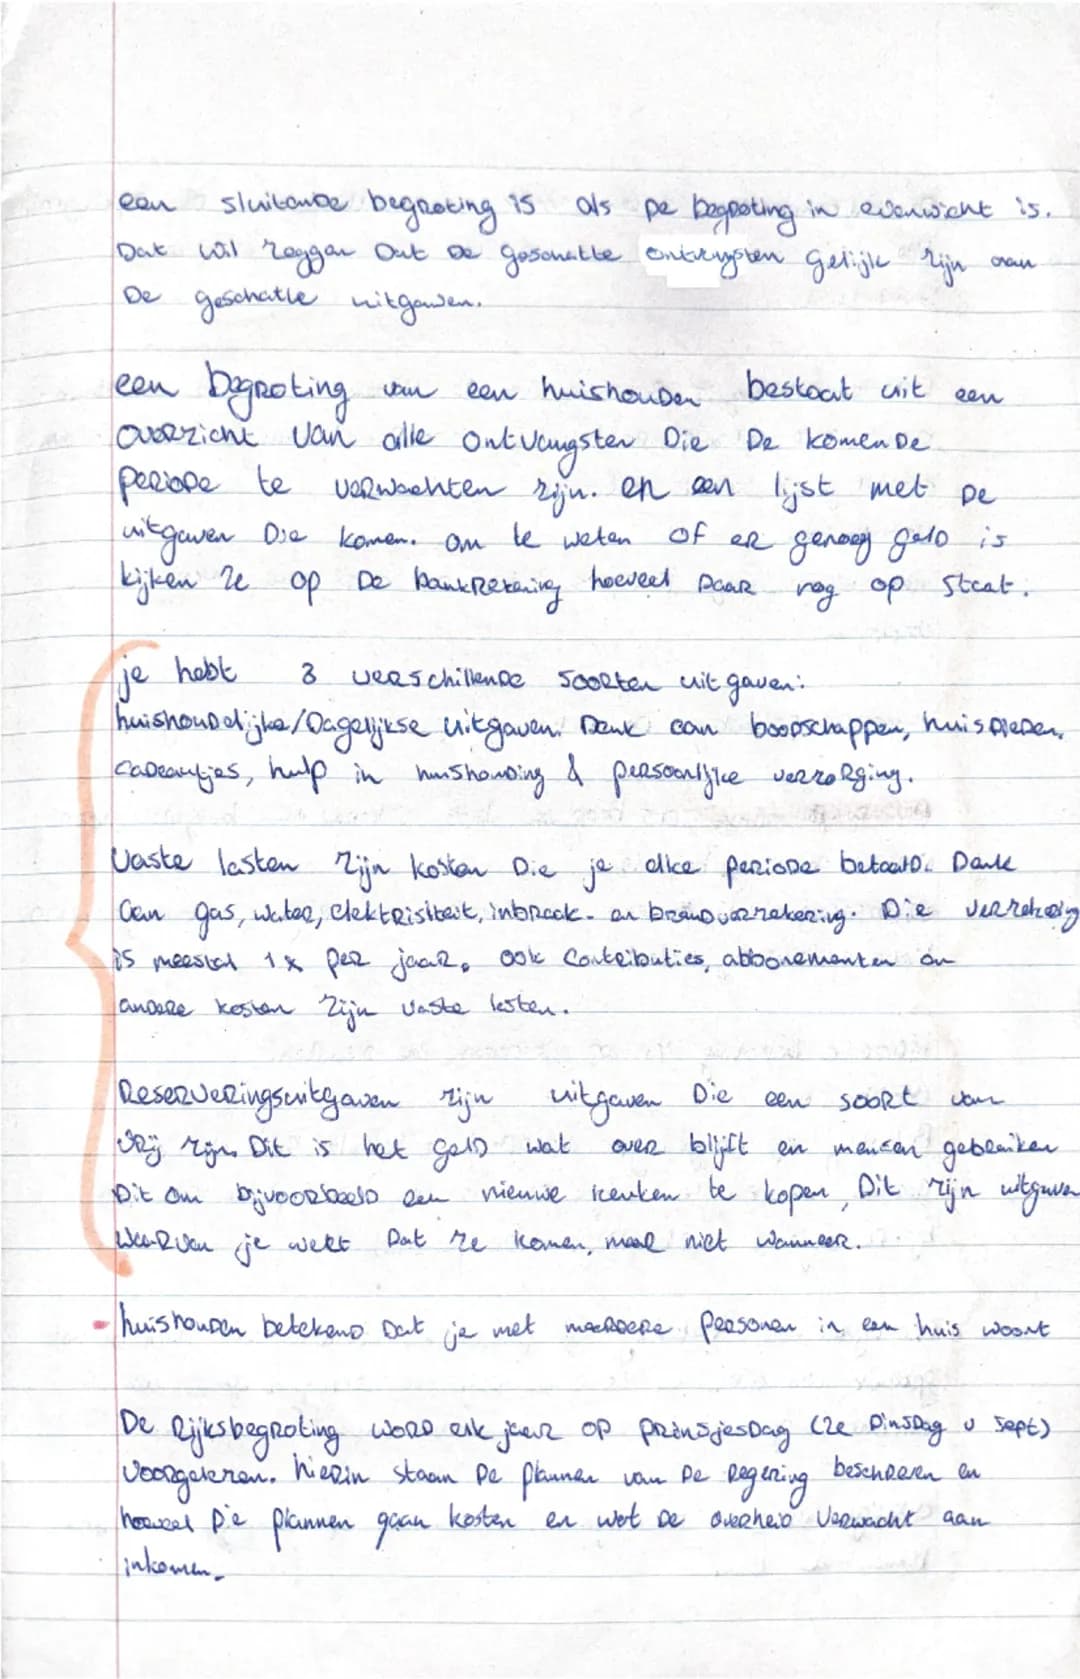 een sluitende begroting is als de begroting in evenwicht is.
Dat wil zeggen Dat De geschatte ontvangsten gelijk zijn aan
De geschatte uitgaven.
een begroting van een huishouden bestaat uit een
overzicht van alle ontvangsten Die De komende
periode te verwachten zijn. en een lijst met de
uitgaven Die komen. om te weten of er genoeg geld is
kijken ze op De bankrekening hoeveel Daar nog op staat.
je hebt 3 verschillende soorten uitgaven:
huishoudelijke/Dagelijkse uitgaven. Denk aan boodschappen, huisdieren,
cadeautjes, hulp in huishouding & persoonlijke verzorging.
Vaste lasten zijn kosten Die je elke periode betaald. Denk
aan gas, water, elektrisiteit, inbraak- en brandverzekering. Die verzekering
is meestal 1x per jaar. ook contributies, abbonementen en
andere kosten zijn vaste lasten.
Reserveringsuitgaven zijn uitgaven Die een soort van
vrij zijn. Dit is het geld wat over blijft en mensen gebruiken
Dit om bijvoorbeeld een nieuwe keuken te kopen, Dit zijn uitgaven
waarvan je weet Dat ze komen, maar niet wanneer.
- huishouden betekend Dat je met meerdere personen in een huis woont
De Rijksbegroting word elk jaar op prinsjesDag (2e Dinsdag v sept)
voorgelezen. hierin staan De plannen van De regering beschreven en
hoeveel Die plannen gaan kosten en wat De overheid verwacht aan
inkomen.